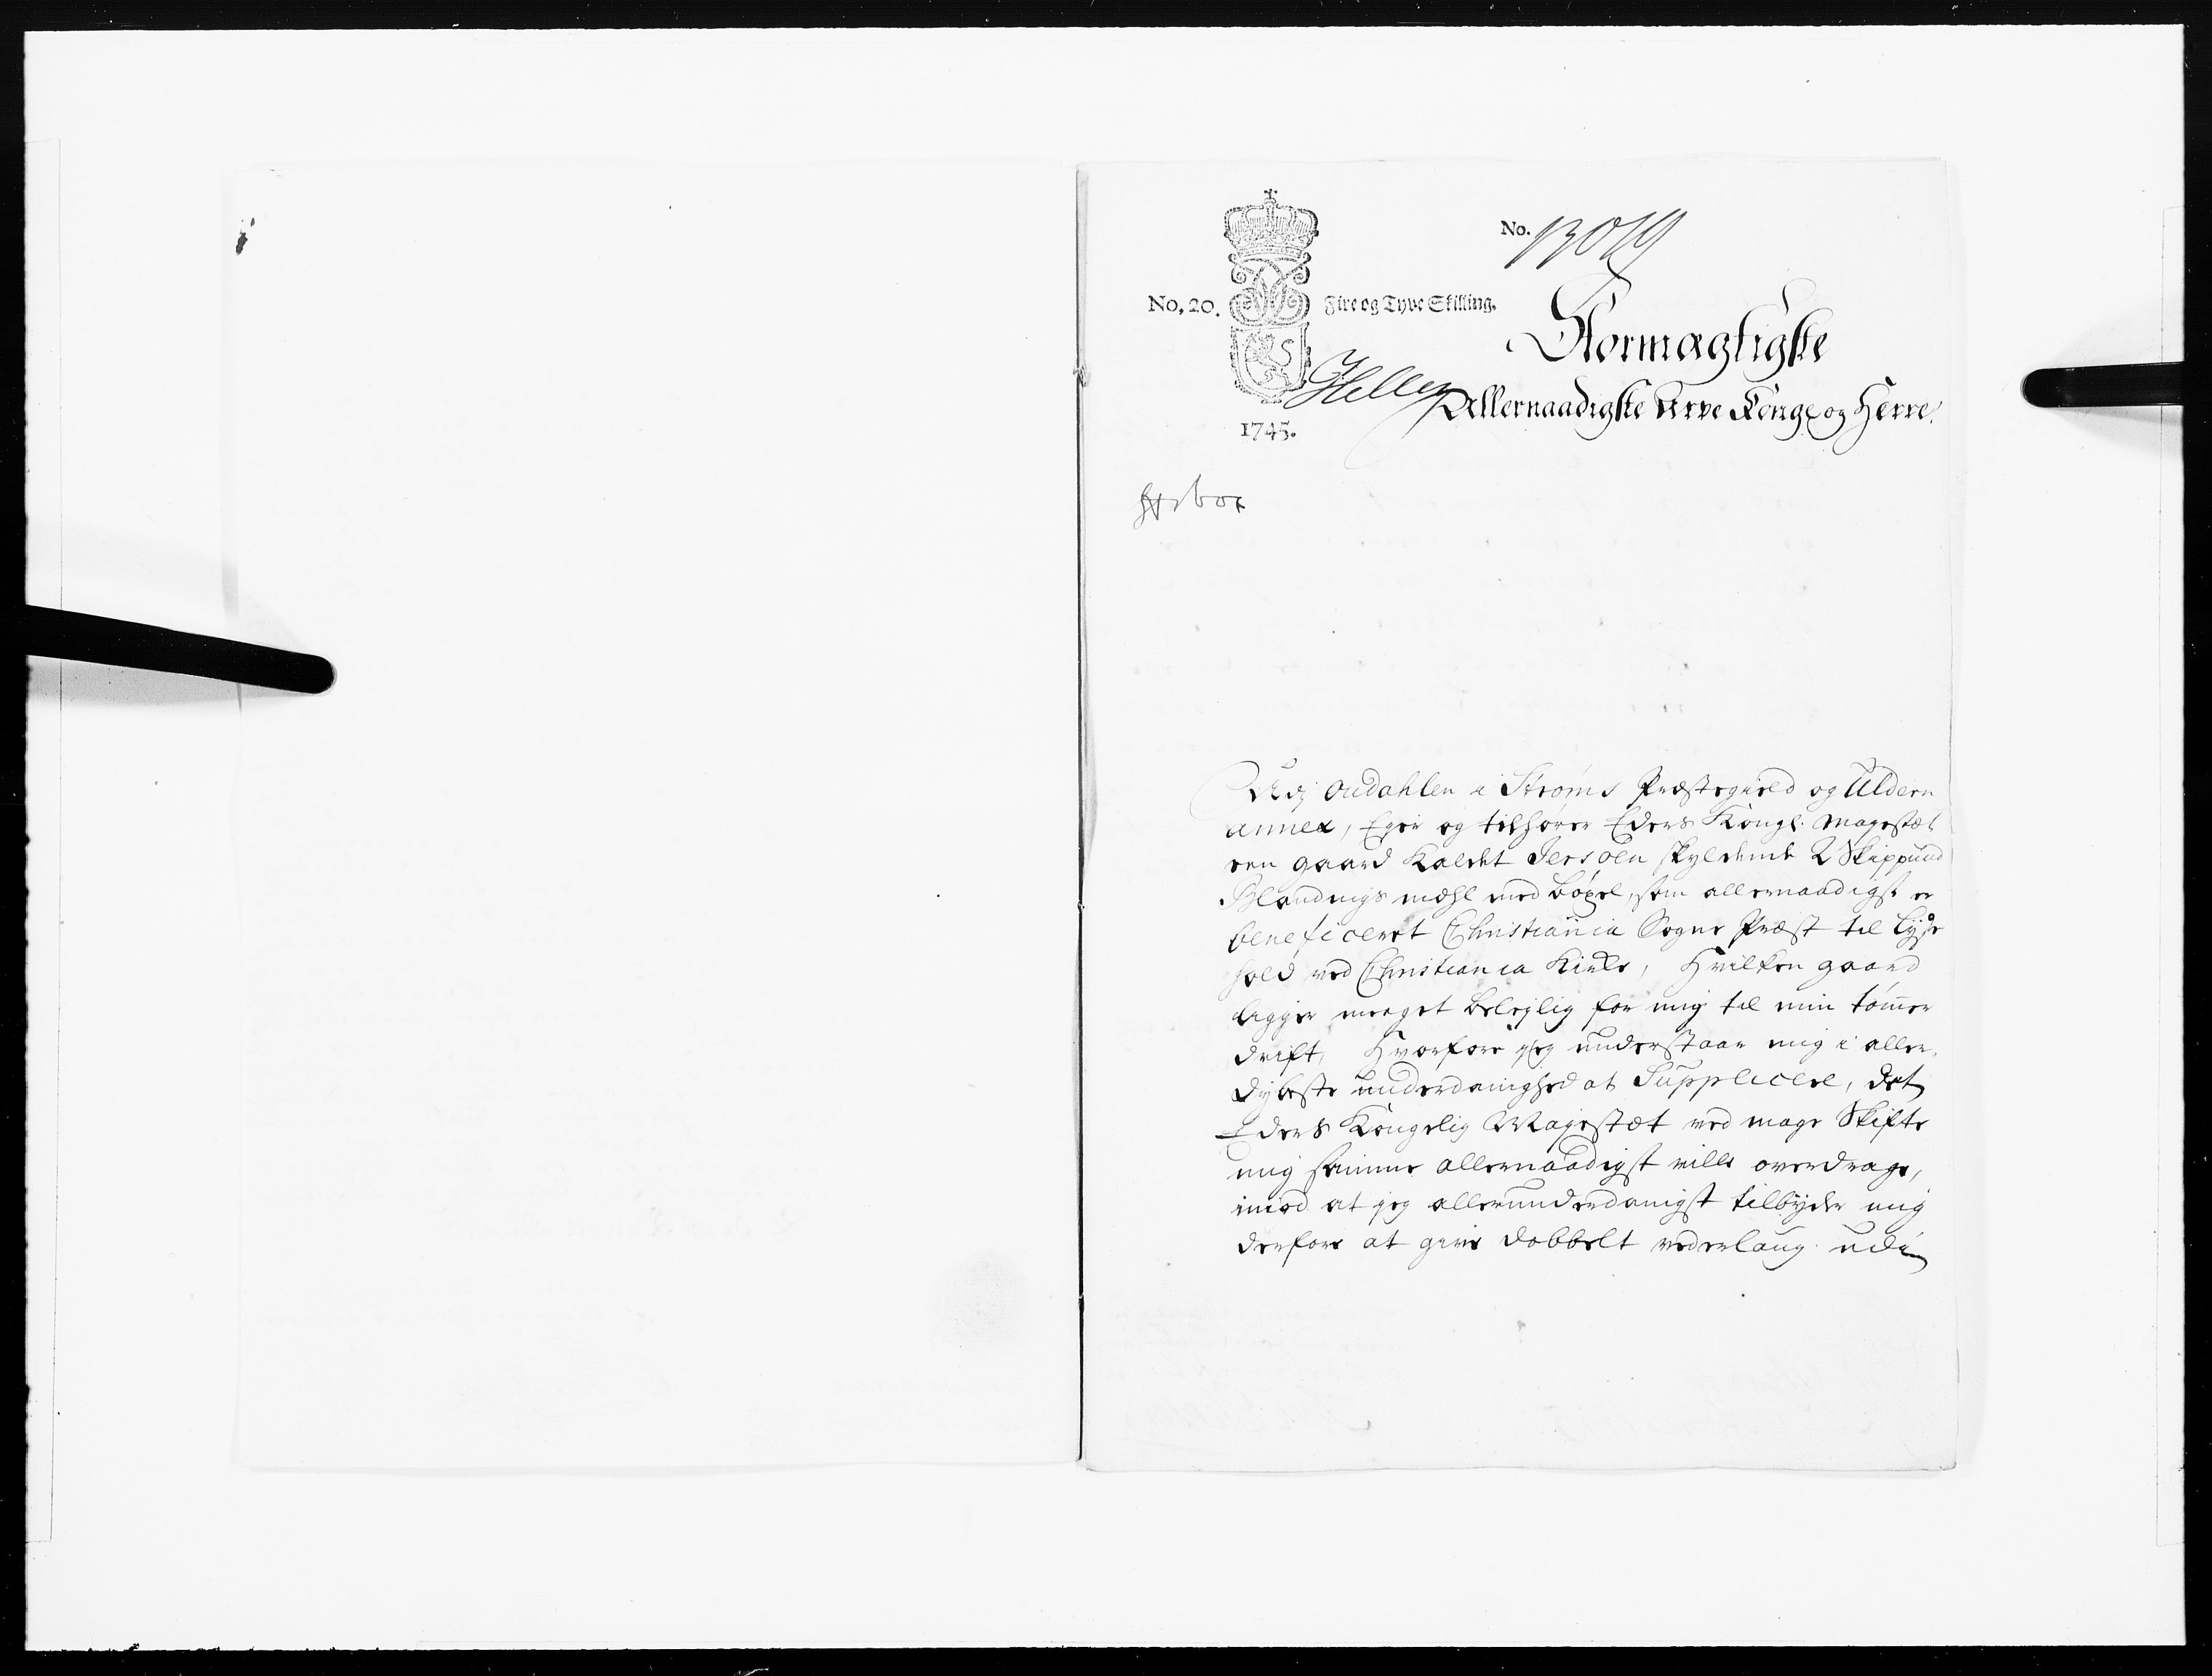 No. 13019
No. 20. Fire og Tyve Skilling.
Stormægtigste
Heller
Allernaadigste Arve Konge og Herre
1745.
Udj Oudahlen i Strøms Præstegield og Uldern
annex, Eger og tilhører Eders Kongl. Mayestæt
een gaard Kaldet Jersøen skyldende 2 Skippund
Blandings mæhl med bøxel, som allernaadigst er
beneficeret Christiania Sogne Præst til lyse
hold ved Christiania Kirke, Hvilken gaard
ligger meeget beleylig for mig til min tømmer
drift, Hvorfore jeg understaar mig i aller
dybeste underdanighed at Supplicere, det
Eders Kongelig Mayestæt ved mage Skifte
mig samme allernaadigst ville overdrage,
imod at jeg allerunderdanigst tilbyder mig
derfore at give dobbelt vederlaug udi